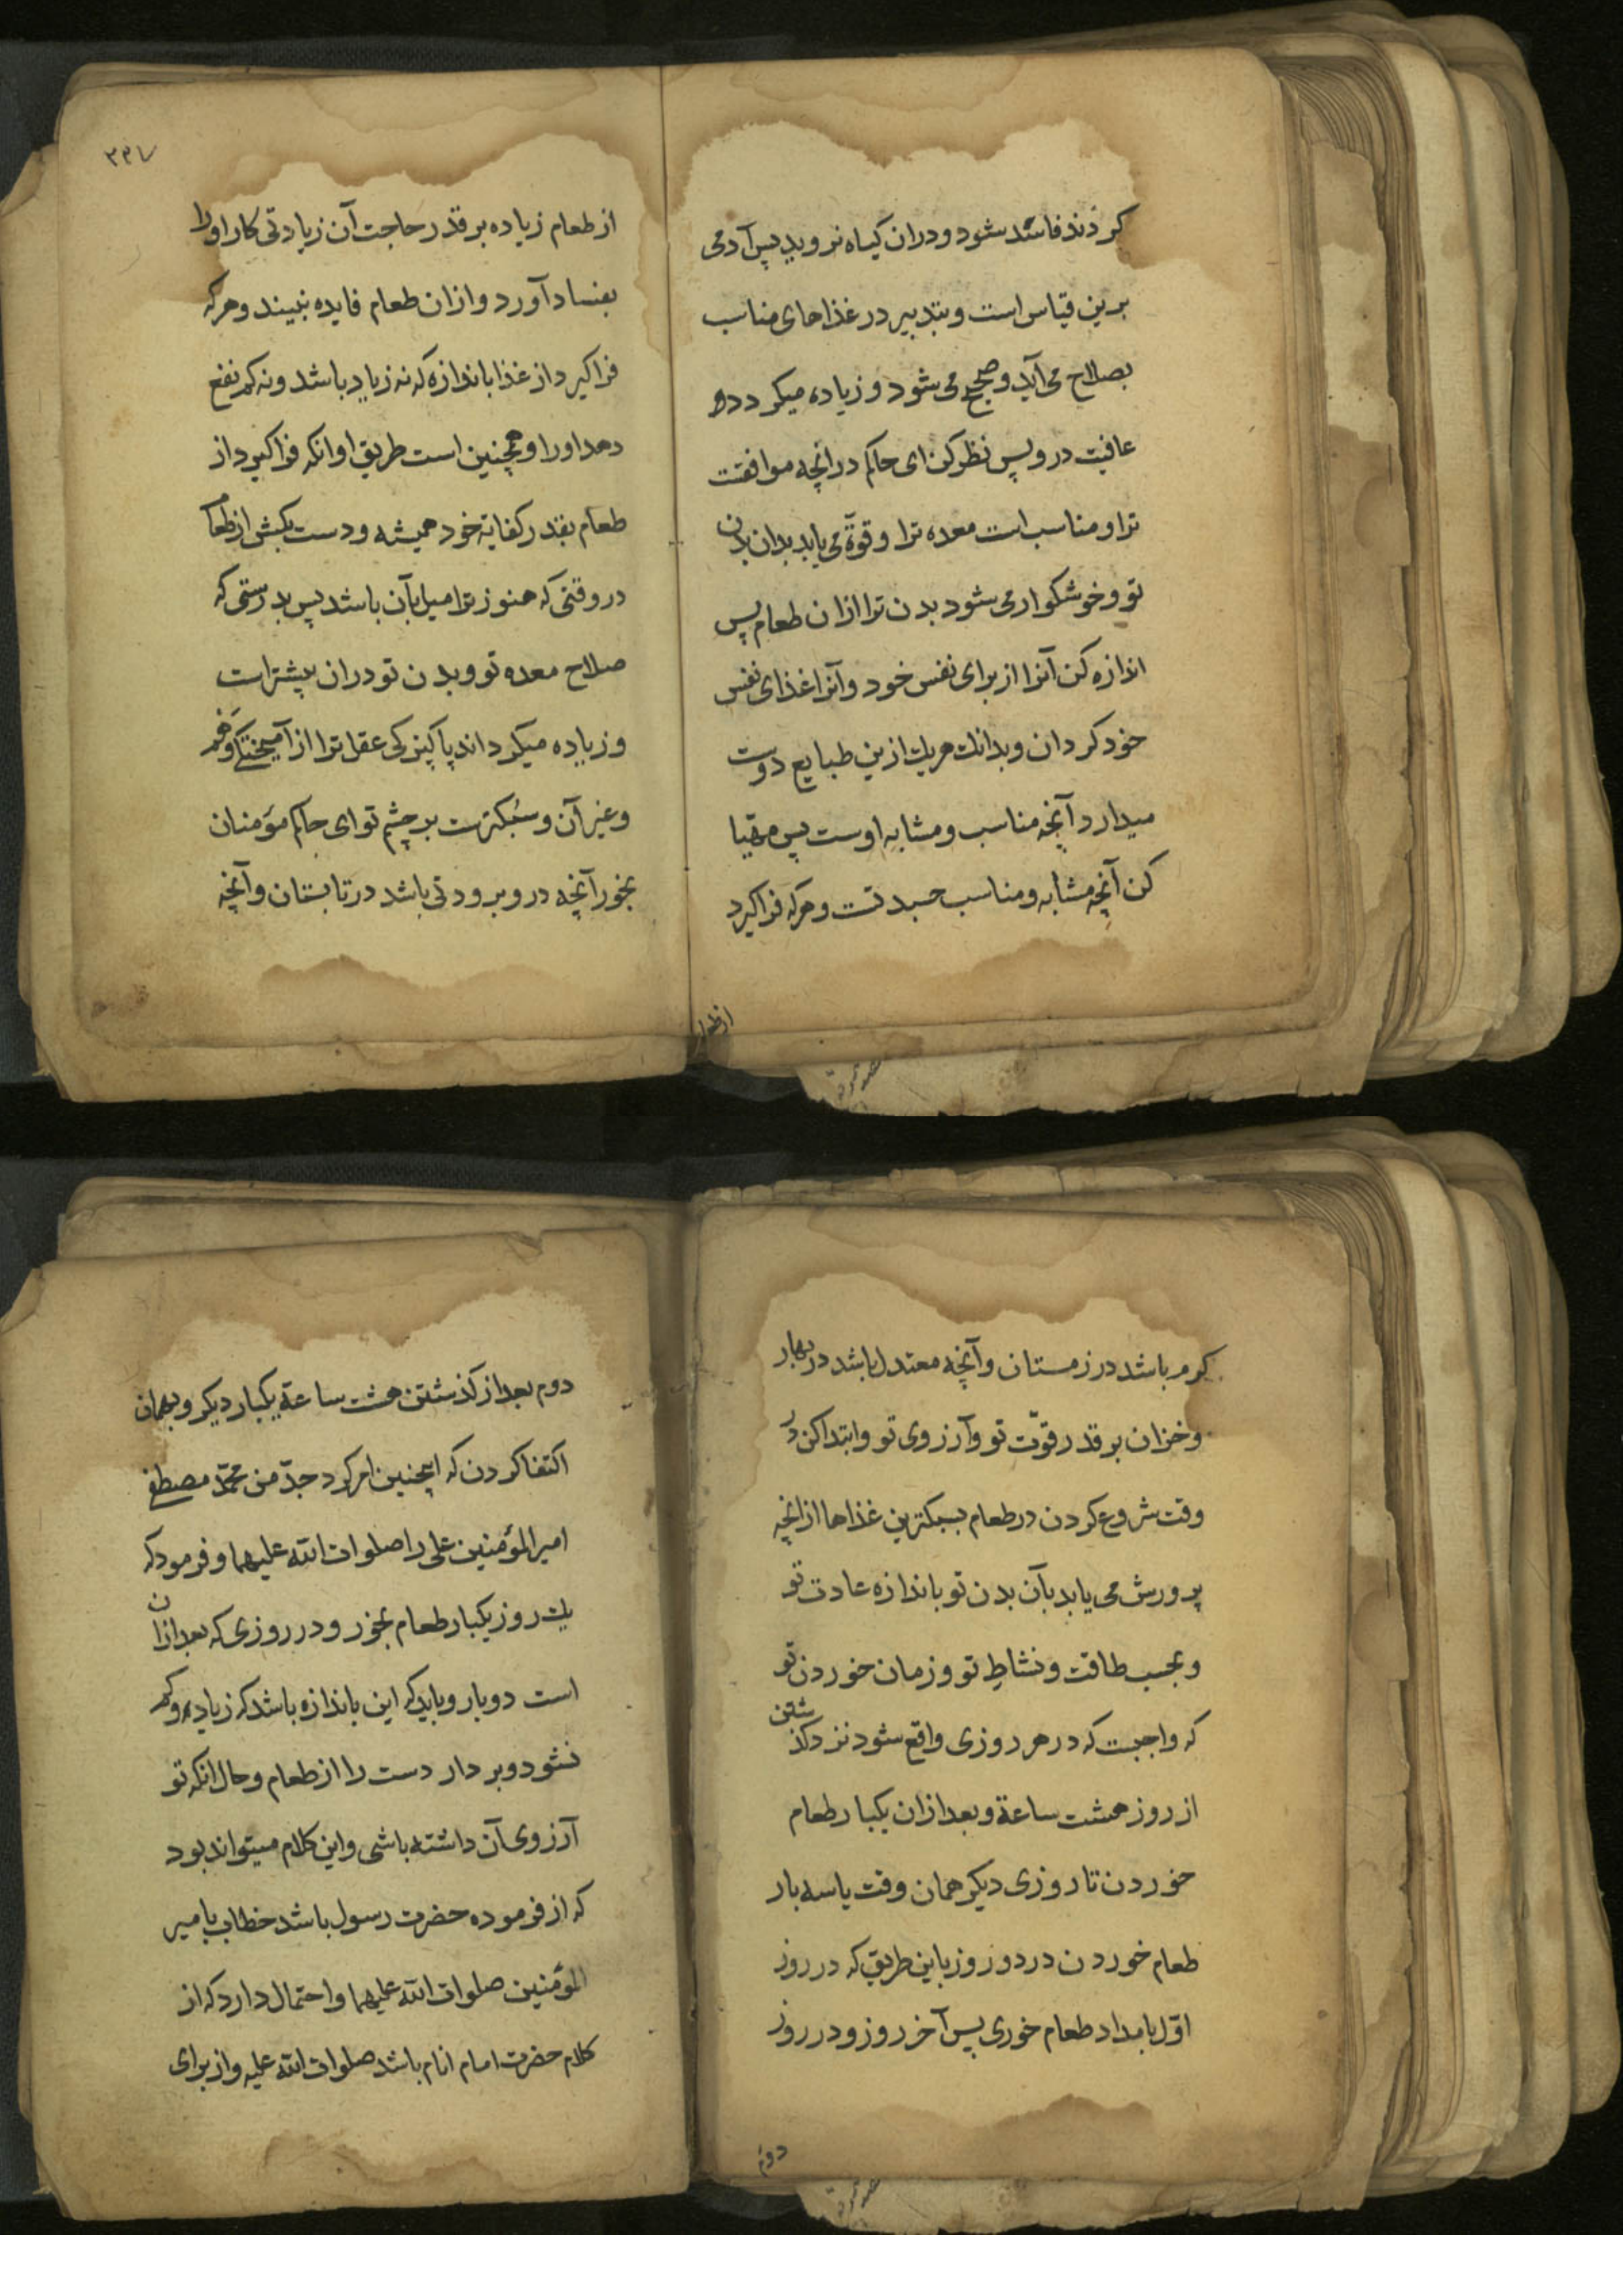 کردند فاسد شود و دران کیاه نروید پس آدمی
برین قیاس است و بتدبیر در غذاهای مناسب
بصلاح می آید و صحیح می شود و زیاده میکردد
عافیت درو پس نظر کن ای حاکم درانچه موافقتت
ترا و مناسب است معده ترا و قوة می یابد بدان بدن
تو و خوشکوار می شود بدن ترا ازان طعام پس
اندازه کن آنرا از برای نفس خود و آنرا غذای نفس
خود کردان و بدانک هریک ازین طبایع دوست
میدارد آنچه مناسب و مشابه اوست پس مهیا
کن آنچه مشابه و مناسب جسد تست و هرکه فراکیرد
از طعام
۳۳۷
از طعام زیاده بر قدر حاجت آن زیادتی کار اورا
بفساد آورد و ازان طعام فایده نبیند و هرکه
فراکیرد از غذا باندازه که نه زیاد باشد و نه کم نفع
دهد اورا و همچنین است طریق او انکه فراکیرد از
طعام بقدر کفایة خود همیشه و دست بکش از طعام
در وقتی که هنوز ترا میل بآن باشد پس بدرستی که
صلاح معده تو و بدن تو دران بیشتر است
و زیاده میکرداند پاکیزکی عقل ترا از آمیختکی وهم
و غیر آن و سبکترست بر جثم تو ای حاکم مؤمنان
بخور آنچه درو برودتی باشد در تابستان و آنچه
کرم باشد در زمستان و آنچه معتدل باشد در بهار
و خزان بر قدر قوّت تو و آرزوی تو و ابتدا کن در
وقت شروع کردن در طعام بسبکترین غذاها ازانچه
پرورش می یابد بآن بدن تو باندازه عادت تو
و بحسب طاقت و نشاط تو و زمان خوردن تو
که واجبست که در هر روزی واقع شود نزد کذشتن
از روز هشت ساعة و بعد ازان یکبار طعام
خوردن تا روزی دیکر همان وقت یا سه بار
طعام خوردن در دو روز باین طریق که در روز
اوّل بامداد طعام خوری پس آخر روز و در روز
دوم
دوم بعد از کذشتن هشت ساعة یکبار دیکر و بهمان
اکتفا کردن که اینچنین امر کرد جدّ من محمّد مصطفی
امیر المؤمنین علی را صلوات الله علیهما و فرمود که
یک روز یکبار طعام بخور و در روزی که بعد ازان
است دوبار و باید که این باندازه باشد که زیاده و کم
نشود و بردار دست را از طعام و حال انکه تو
آرزوی آن داشته باشی و این کلام میتواند بود
که از فرموده حضرت رسول باشد خطاب بامیر
المؤمنین صلوات الله علیهما و احتمال دارد که از
کلام حضرت امام انام باشد صلوات الله علیه و از برای